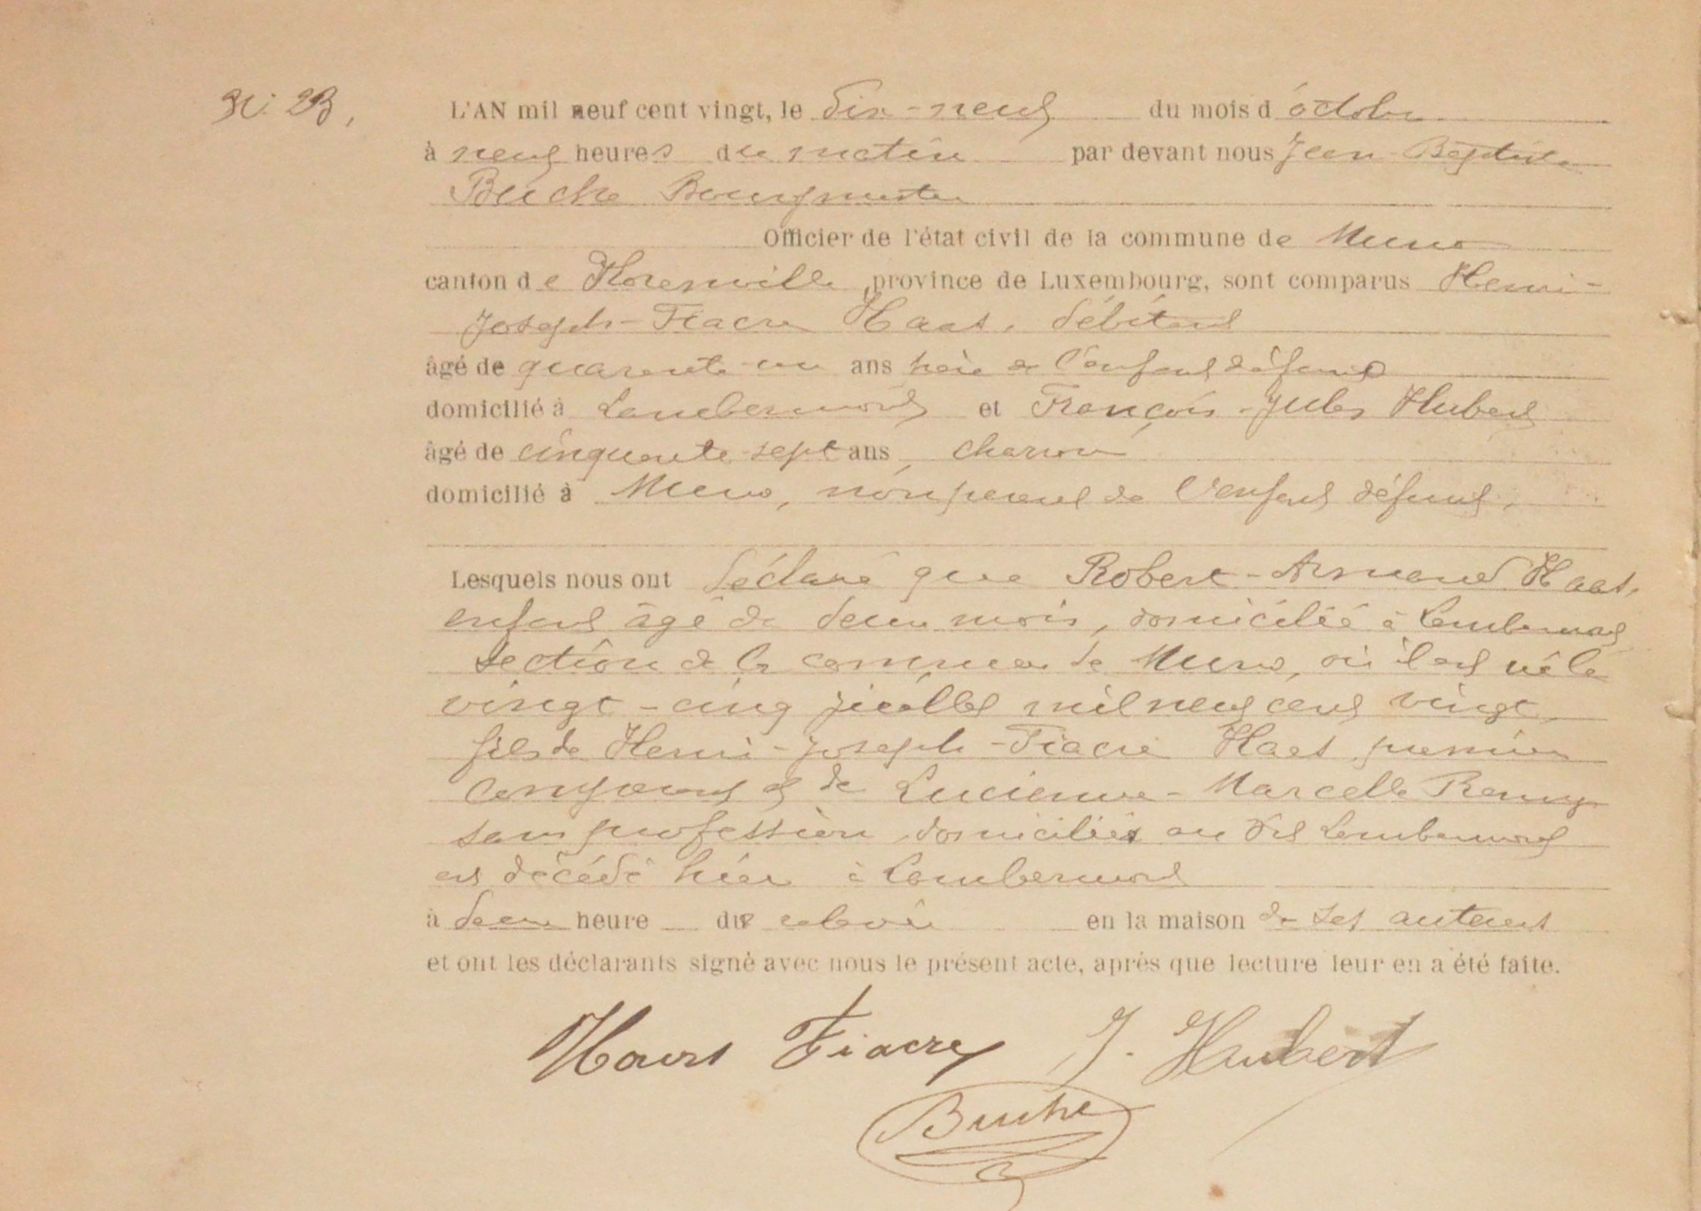 N: 23,
L'AN mil neuf cent vingt, le dix-neuf du mois d'octobre
à neuf heures du matin par devant nous Jean Baptiste
Buche Bourgmestre
Officier de l'état civil de la commune de Muno
canton de Florenville, province de Luxembourg, sont comparus Henri-
Joseph-Fiacre Haas, débitant
âgé de quarante un ans père de l'enfant défunt
domicilié à Lambermont et François-Jules Hubert
âgé de cinquante sept ans, charron
domicilié à Muno, non parent de l'enfant défunt,
Lesquels nous ont déclaré que Robert-Armand Haas,
enfant âgé de deux mois, domicilié à Lambermont
section de la commune de Muno, où il est né le
vingt-cinq juillet mil neuf cent vingt,
fils de Henri-Joseph-Fiacre Haas premier
comparant et de Lucienne-Marcelle Remy
sans profession, domiciliés au dit Lambermont
est décédé hier à Lambermont
à deux heure du en la maison de ses auteurs
et ont les déclarants signé avec nous le présent acte, après que lecture leur en a été faite.
Fiacre J. Hubert
Buche